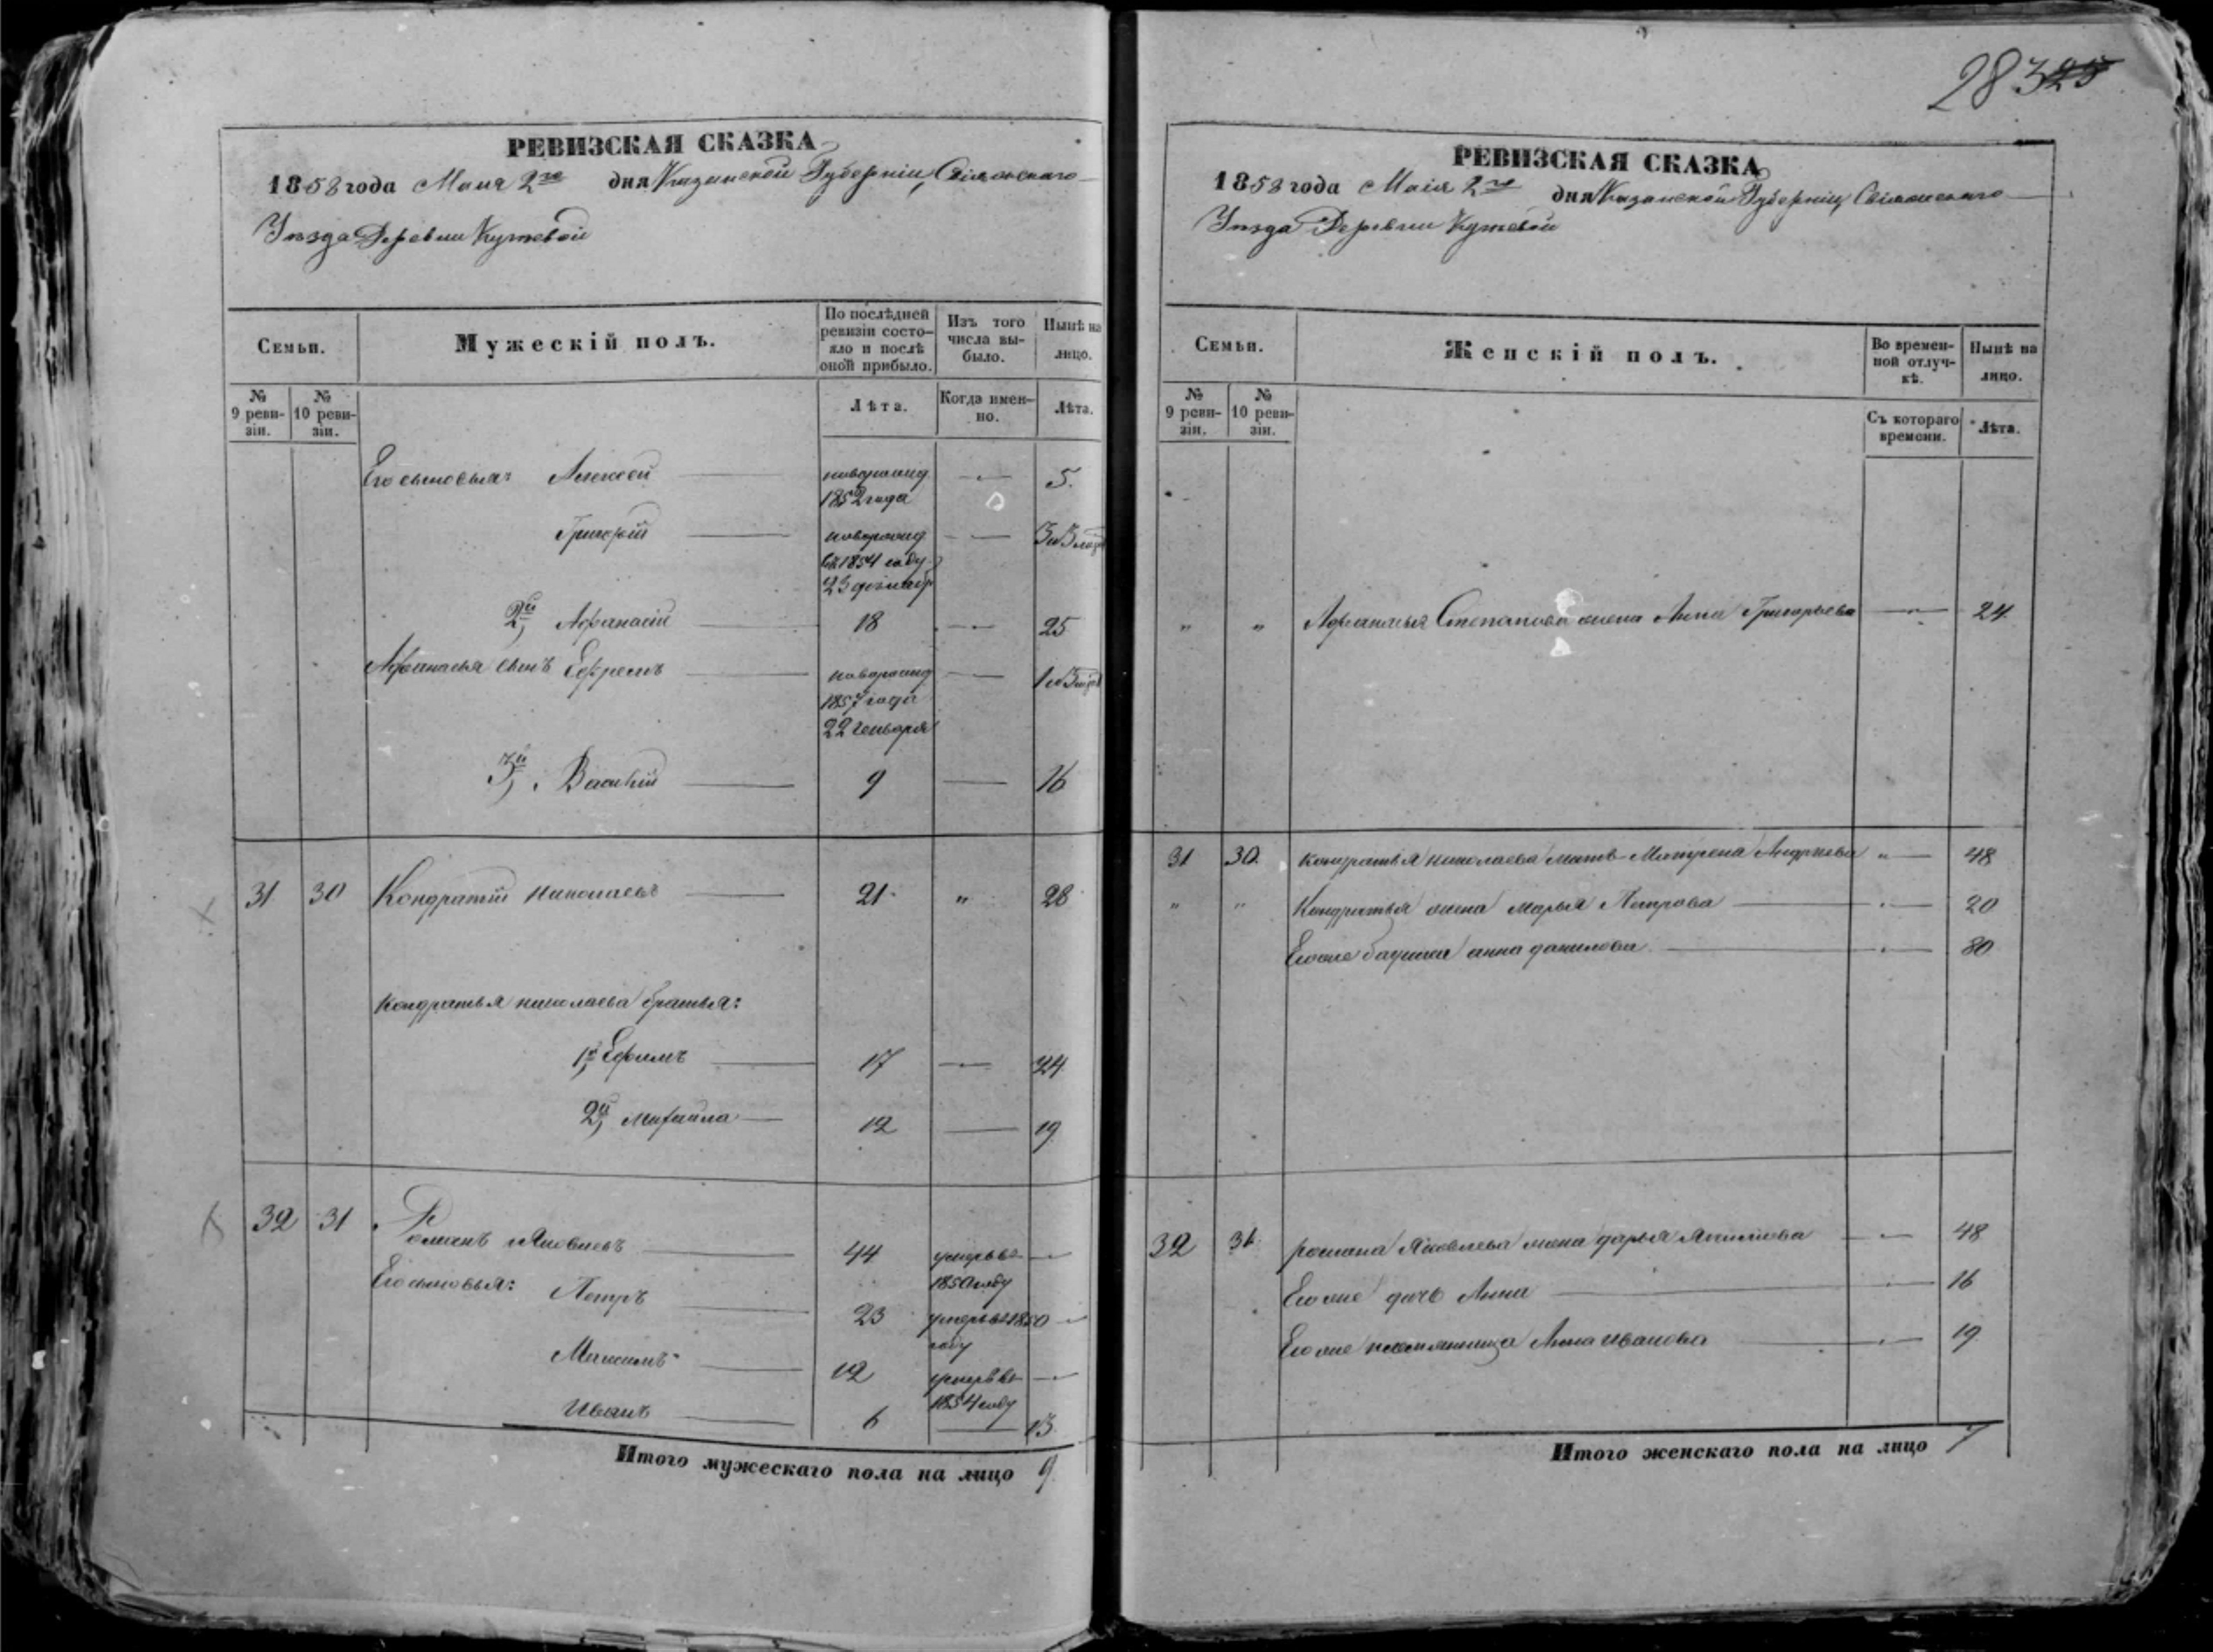 283
РЕВИЗСКАЯ СКАЗКА
1858 года Маия 2го дня Казанской Губерніи, Свіяжскаго
Уѣзда Деревни Кутевой
Семьи.
Мужескій полъ.
По послѣдней ревизіи состояло и послѣ оной прибыло.
Изъ того числа выбыло.
Нынѣ на лицо.
№ 9 ревизіи.
№ 10 ревизіи.
Лѣта.
Когда именно.
Лѣта.
Его сыновья: Алексей новорожд 1852 года 5.
Григорій новорожд въ 1854 году 23 декабр
2й, Афанасій 18 25
Афанасья сынъ Ефремъ новорожд 1857 года 22 Генваря
3й, Василій 9 16
31 30 Кондратій Николаевъ 21 " 28
Кондратья николаева братья:
1й, Ефимъ 17 24
2й, Михайла 12 19
32 31 Романъ Яковлевъ 44 умеръ въ 1850 году
Его сыновья: Петръ 23 умеръ въ 1850 году
Максимъ 12 умеръ въ 1854 году
Иванъ 6 13
Итого мужескаго пола на лицо 9.
РЕВИЗСКАЯ СКАЗКА
1858 года Маія 2го дня Казанской Губерніи, Свіяжскаго
Уѣзда Деревни Кутевой
Семьи.
Женскій полъ.
Во временной отлучкѣ.
Нынѣ на лицо.
№ 9 ревизіи.
№ 10 ревизіи.
Съ котораго времени.
Лѣта.
" " Афанасья Степанова жена Анна Григорьева 24
31 30. Кондратья николаева мать Матрена Андреева " 48
" " Кондратья жена марья Петрова 20
Его же бабушка анна данилова 80
32 31. романа Яковлева жена дарья 48
Его же дочь Анна 16
Его же племянница Анна Иванова 19
Итого женскаго пола на лицо 7